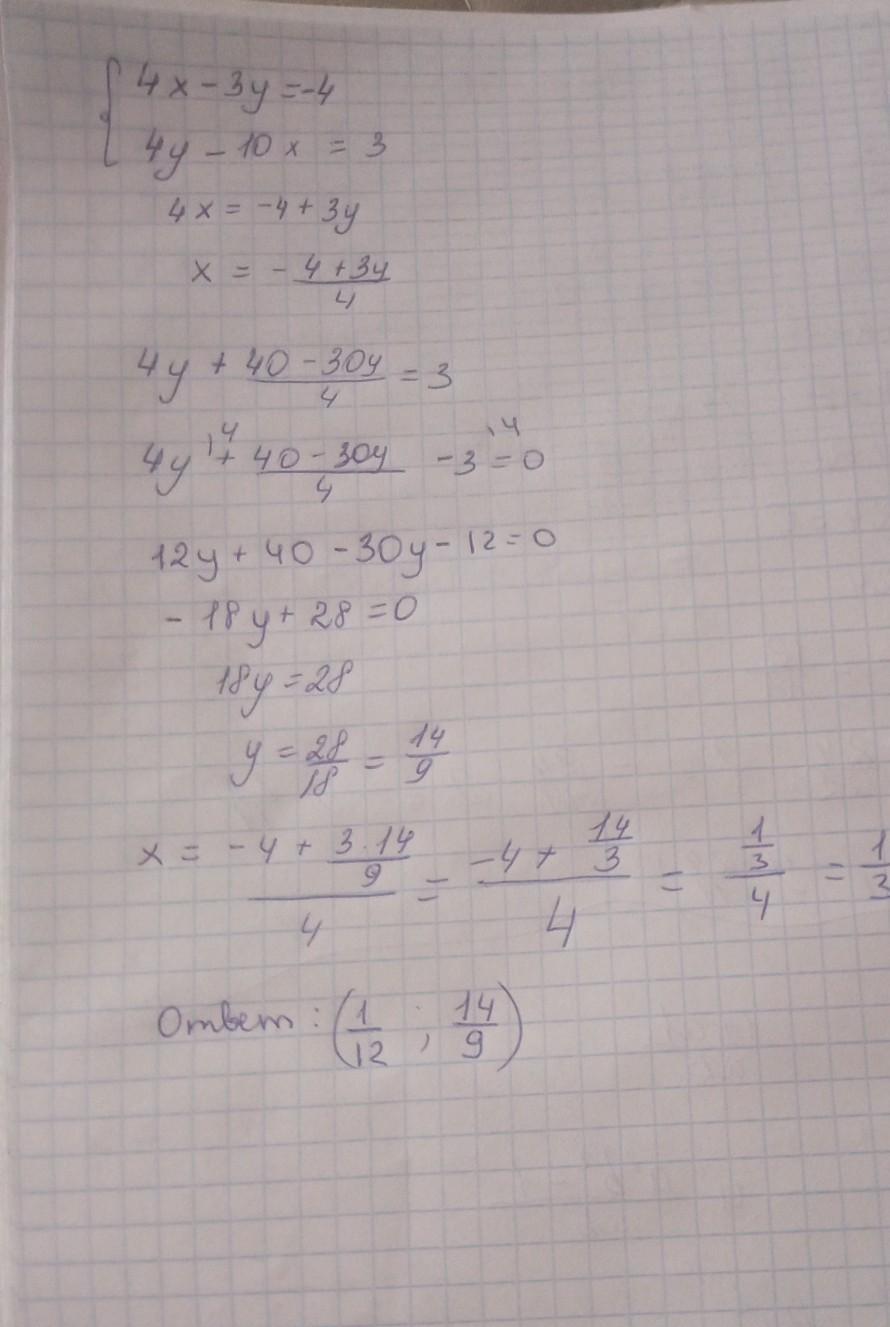 { 4x - 3y = -4
4y - 10x = 3
4x = -4 + 3y
x = - (4 + 3y)/4
4y + (40 - 30y)/4 = 3
4y \4 + (40 - 30y)/4 - 3 \4 = 0
12y + 40 - 30y - 12 = 0
- 18y + 28 = 0
18y = 28
y = 28/18 = 14/9
x = (-4 + (3·14)/9)/4 = (-4 + 14/3)/4 = (1/3)/4 = 1/3
Ответ: (1/12 ; 14/9)